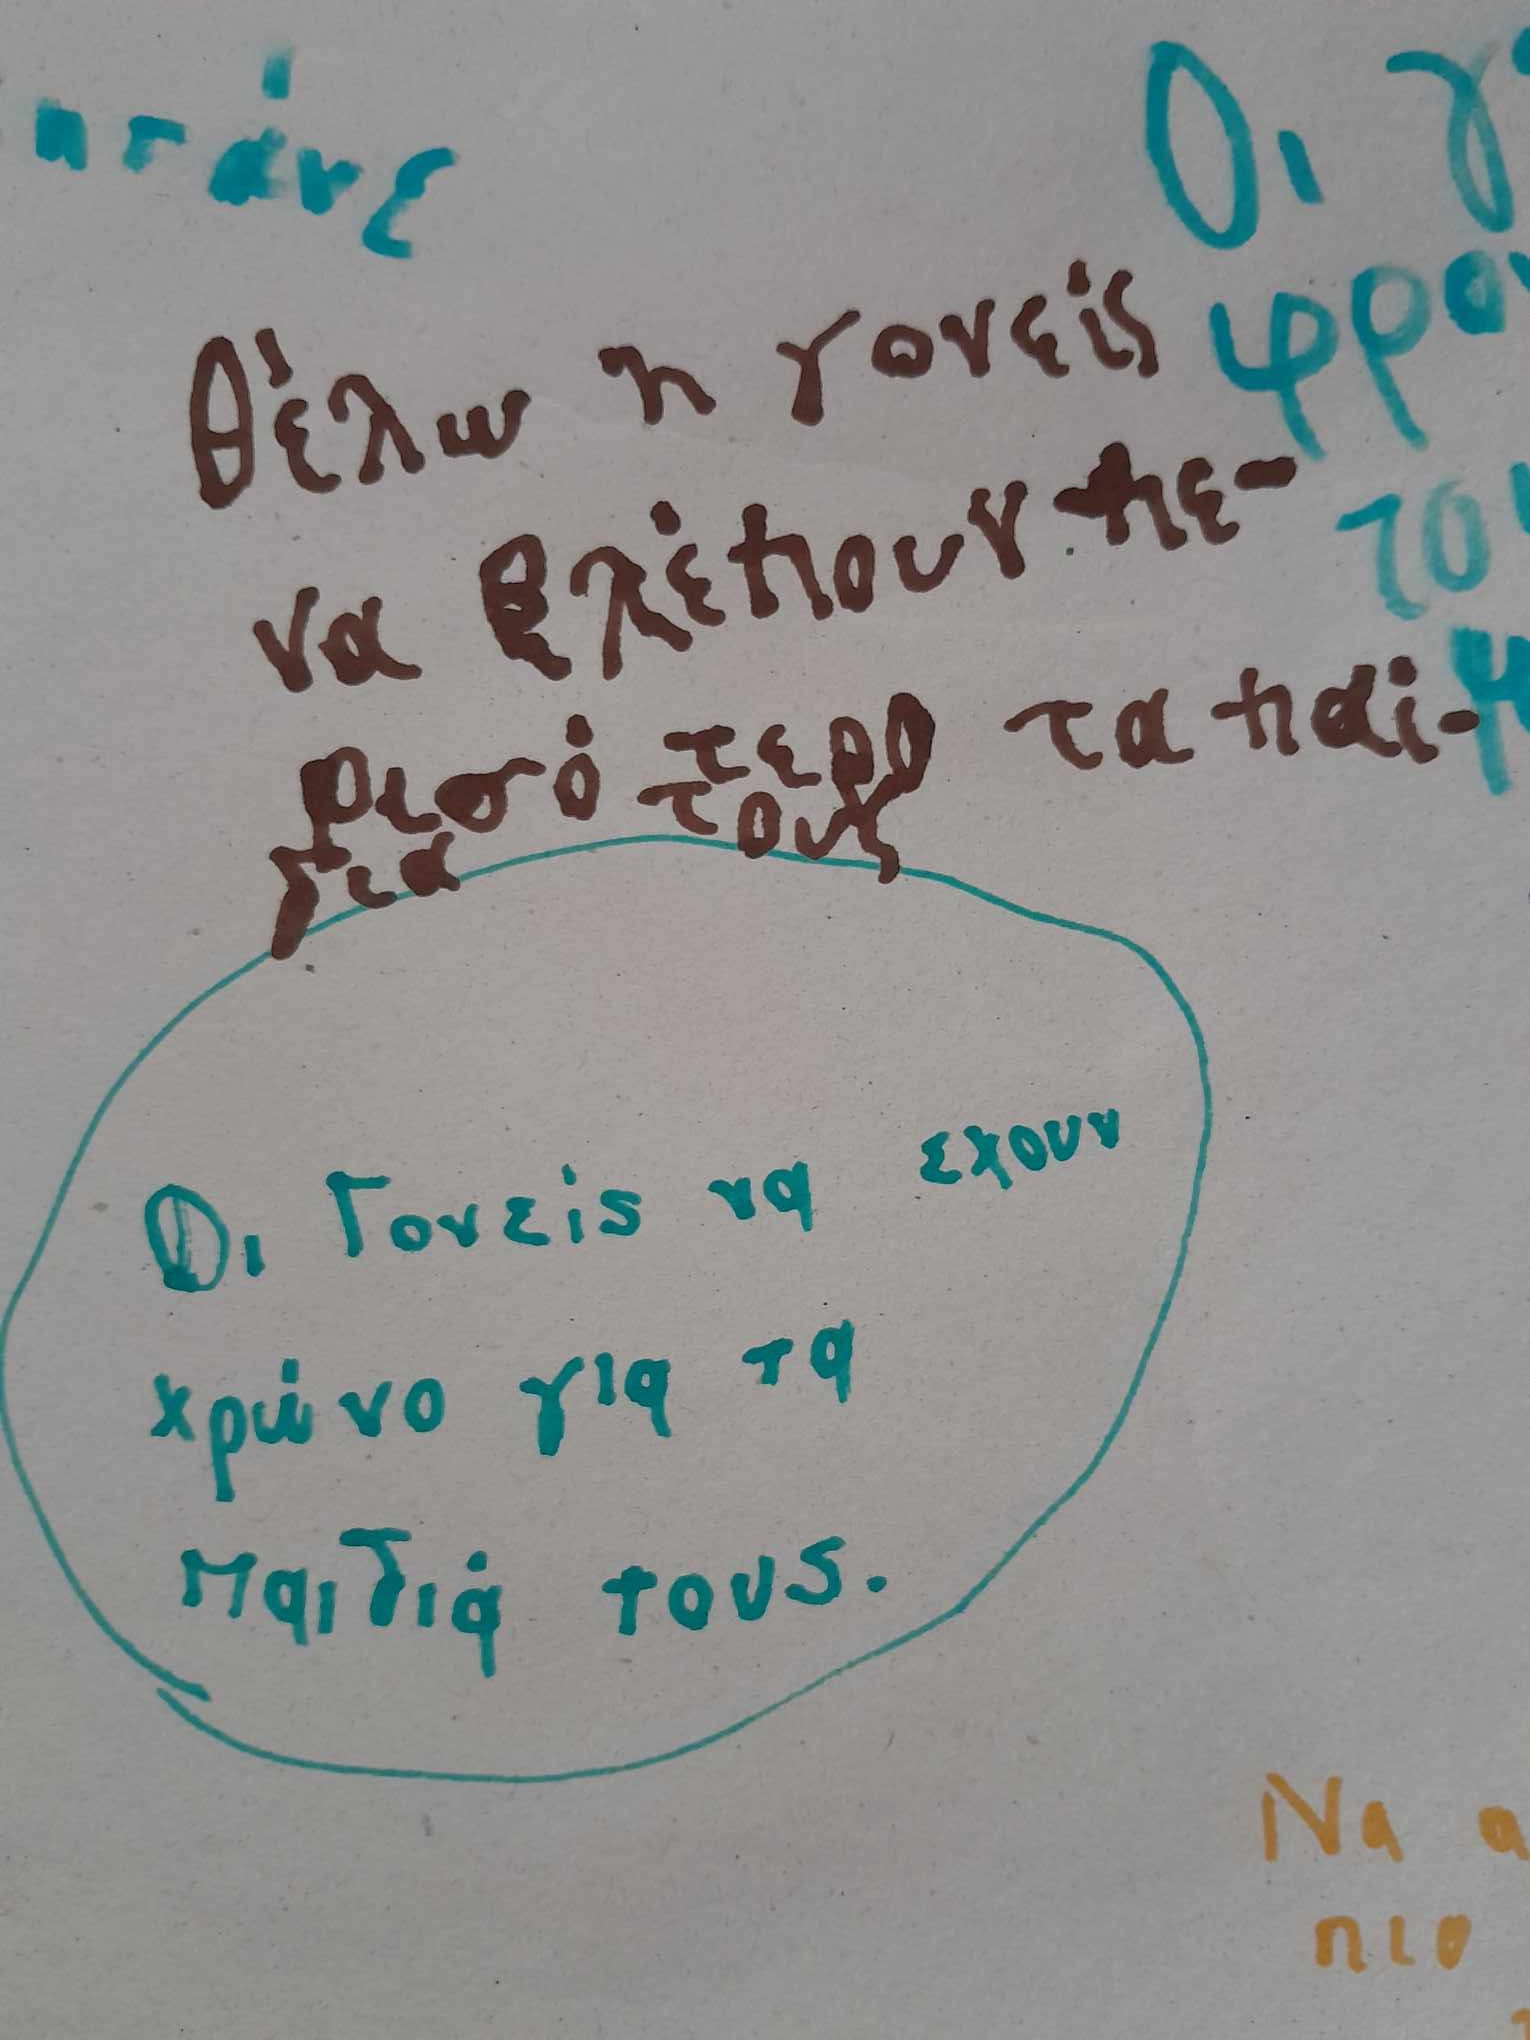 Οι
Θέλω η γονείς
να βλέπουν πε-
ρισότερο τα παι-
διά τους
Οι Γονείς να εχουν
χρώνο για τα
παιδιά τους.
Να
πιο